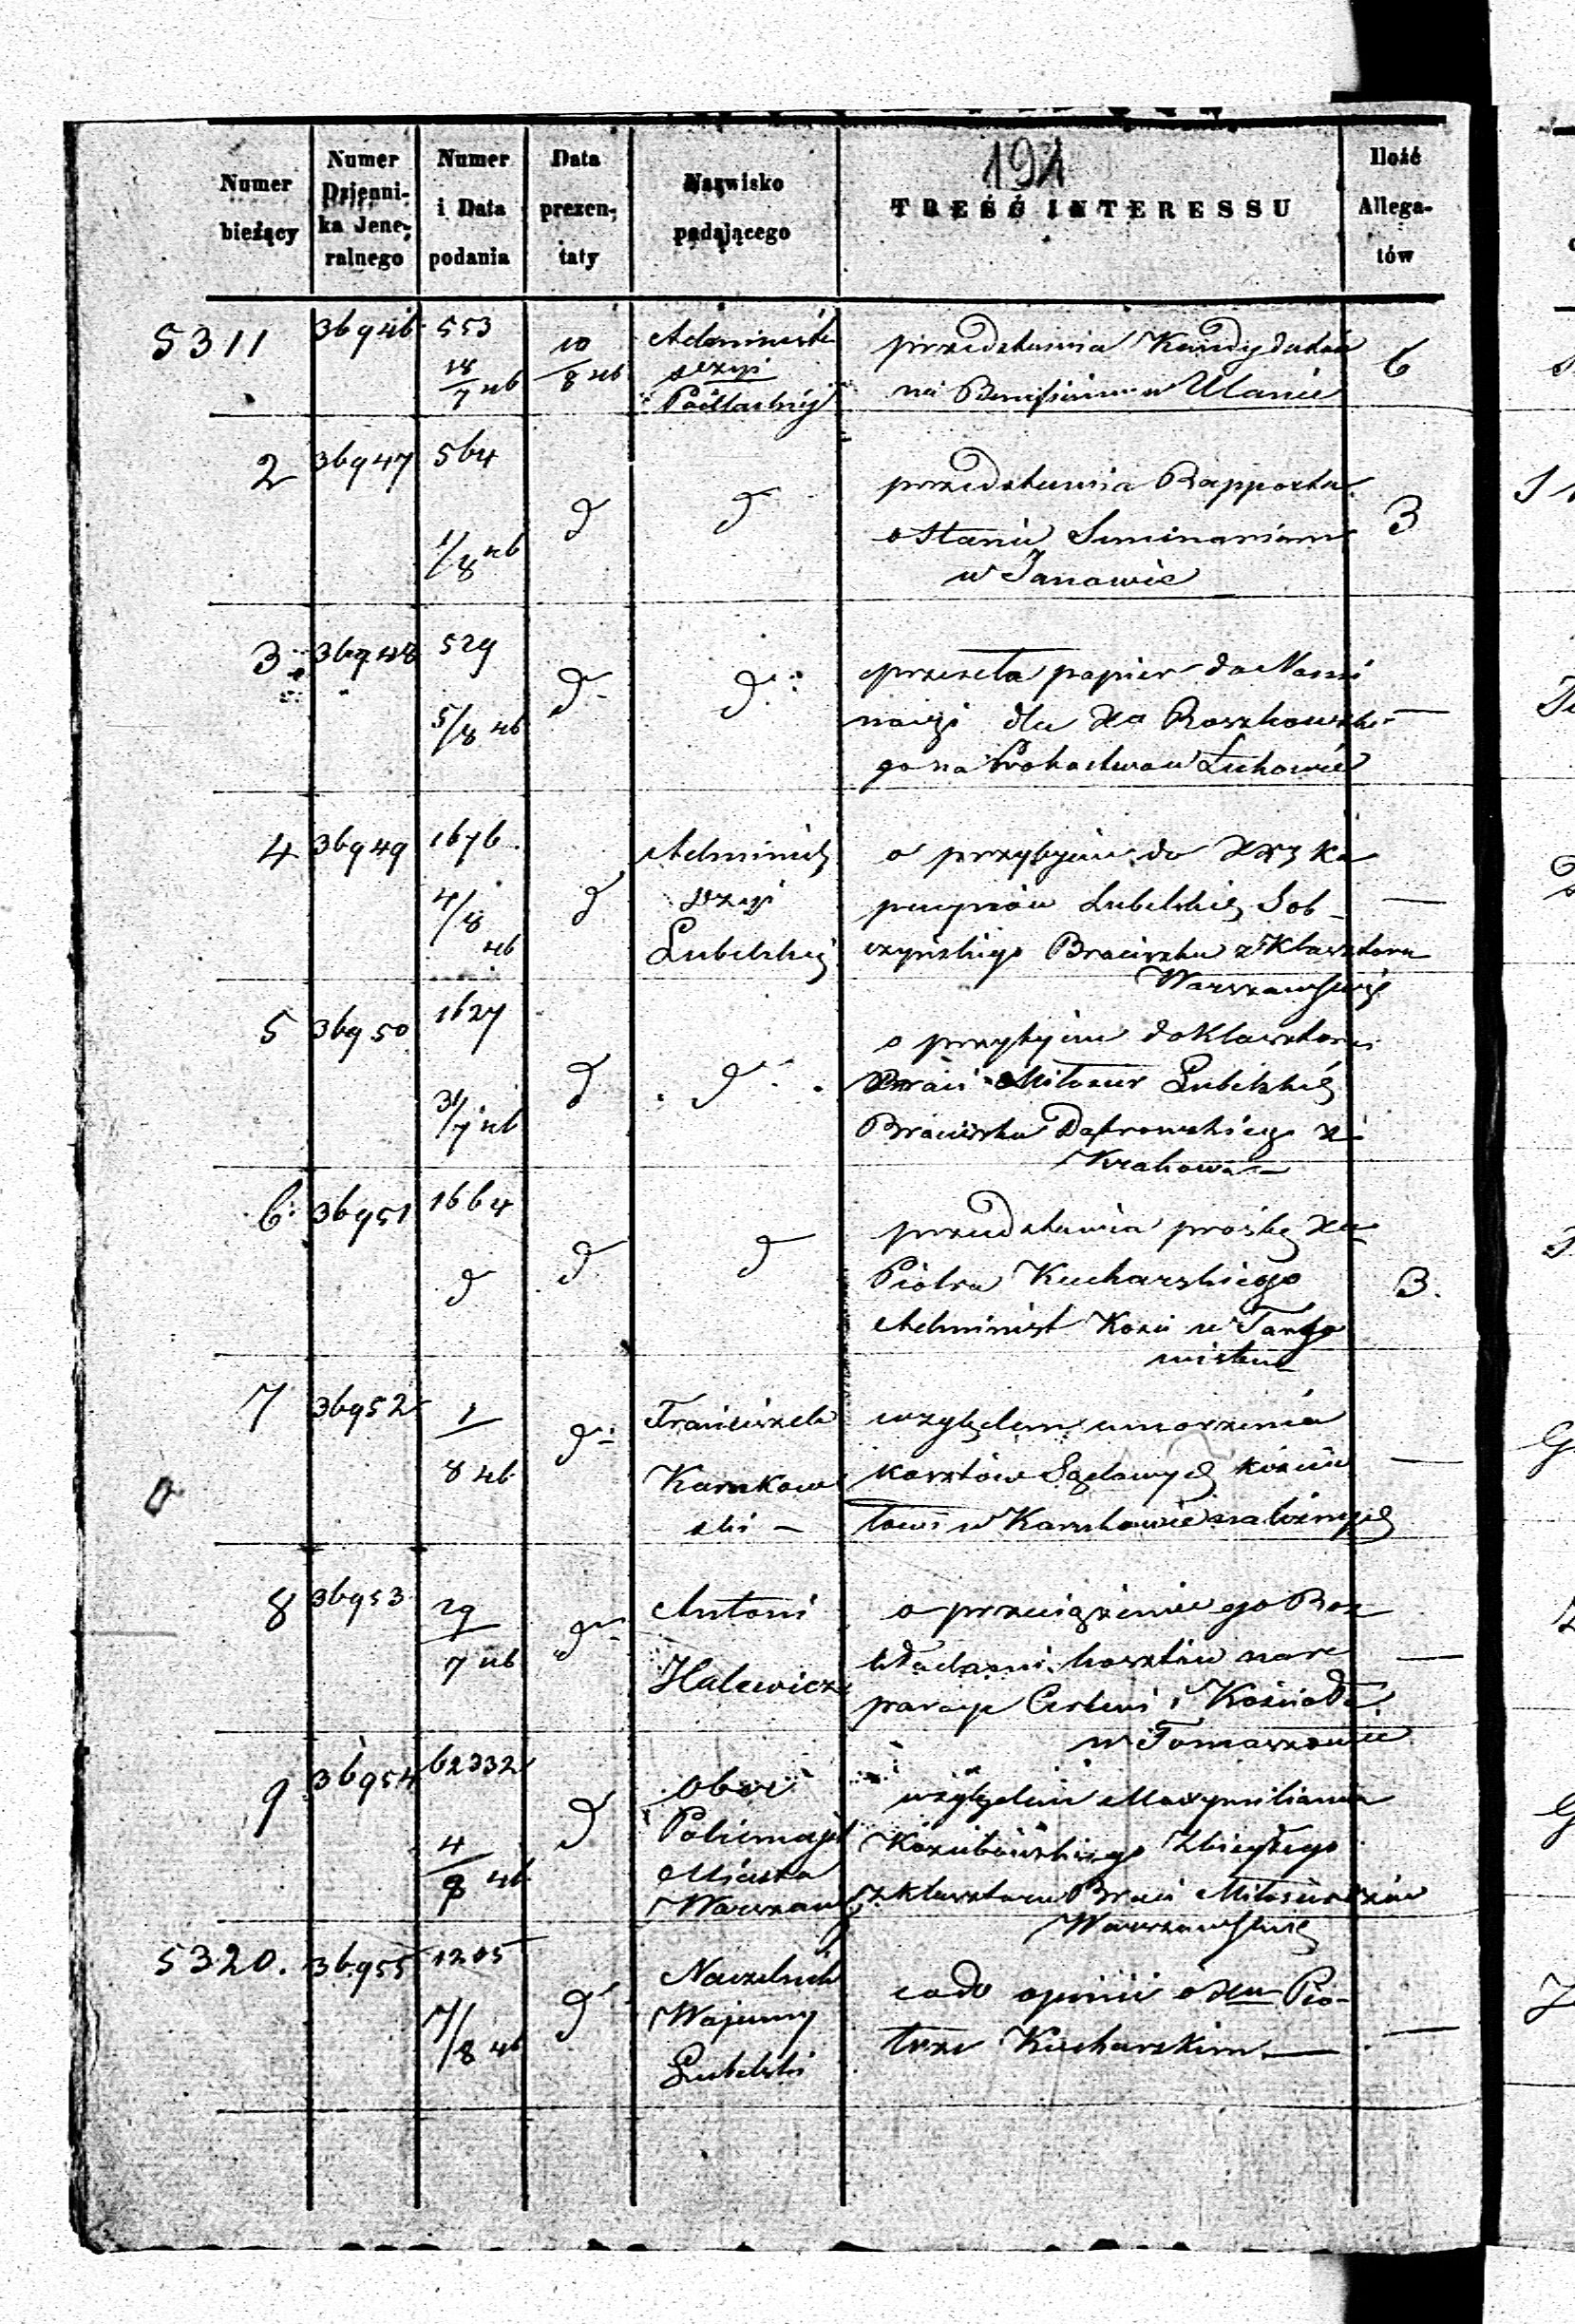 191
Numer bieżący
Numer Dzienni- ka Jene- ralnego
Numer i Data podania
Data prezen- taty
Nazwisko podającego
TREŚĆ INTERESSU
Ilość Allega- tów
5311 36946 553 18/7 46 10/8 46
Administr
dyzyi
Podlaskiej
przedstawia Kandydatów
na Beneficium w Ulanie
6
2 36947 564 1/8 46 d d
przedstawia Rapporta
o stanie Seminarium
w Janowie
3
3 36948 529 5/8 46 d d
przeseła papier do Nomi
nacyi dla Xa Roszkowskie
go na Probostwo w Łukowie
—
4 36949 1676 4/8 46 d
Administ
dyzyi
Lubelskiej
o przybyciu do XX Ka
pucynów Lubelskich Sob-
czyńskiego Braciszka z Klasztoru
Warszawskiej
—
5 36950 1627 31/7 46 d d
o przybyciu do Klasztoru
Braci Miłosier Lubelskich
Braciszka Dąbrowskiego z
Krakowa —
6 36951 1664 d d d
przedstawia prośbę Xa
Piotra Kucharskiego
Administ Kości w Targo
wisku
3.
7 36952 1/8 46 d
Franciszek
Karnkow
ski —
względem umorzenia
kosztów Sądowych kościo
łowi w Karnkowie należnych
—
8 36953 29/7 46 d
Antoni
Halewicz
o przeciążenie go Roz
kładami kosztów na re
paracye Cerkwi i Kościoła
w Tomaszowie
—
9 36954 62332 4/8 46 d
Ober
Policmajst
Miasta
Warszawy
względem Maxymiliana
Kozubowskiego Zbiegłego
z Klasztoru Braci Miłosierdzia
Warszawskiej
5320. 36955 1205 7/8 46 d
Naczelnik
Wojenny
Lubelski
co do opinii o Xu Pio-
trze Kucharskim —
—